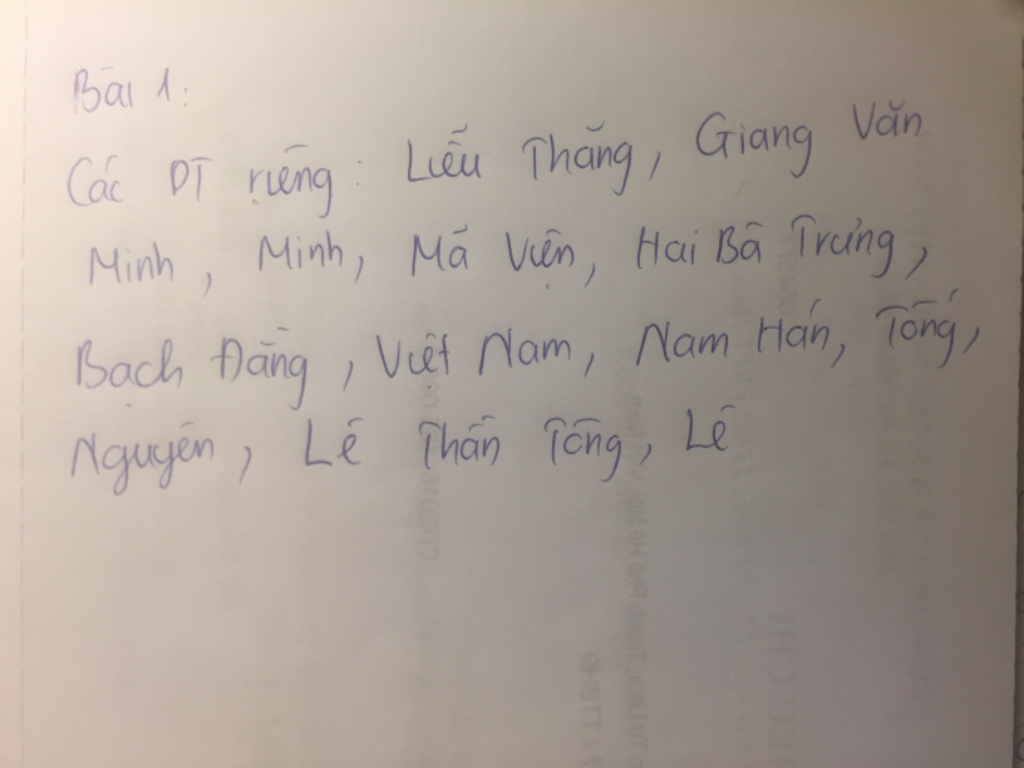 Bài 1:
Các DT riêng: Liễu Thăng, Giang Văn
Minh, Minh, Mã Viện, Hai Bà Trưng,
Bạch Đằng, Việt Nam, Nam Hán, Tống,
Nguyên, Lê Thần Tông, Lê